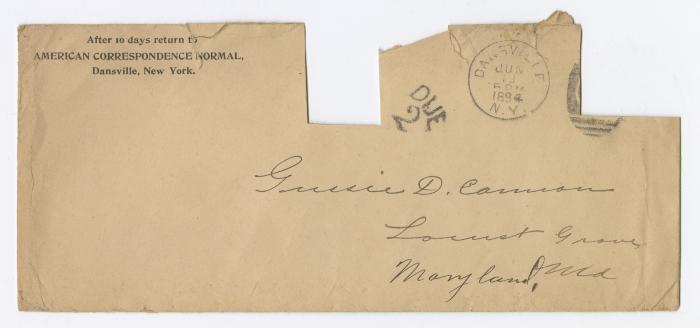 After 10 days return to
AMERICAN CORRESPONDENCE NORMAL,
Dansville, New York.
DANSVILLE
JUN
1894
N.Y.
DUE
2
Gussie D. Cannon
Locust Grove
Maryland, Md